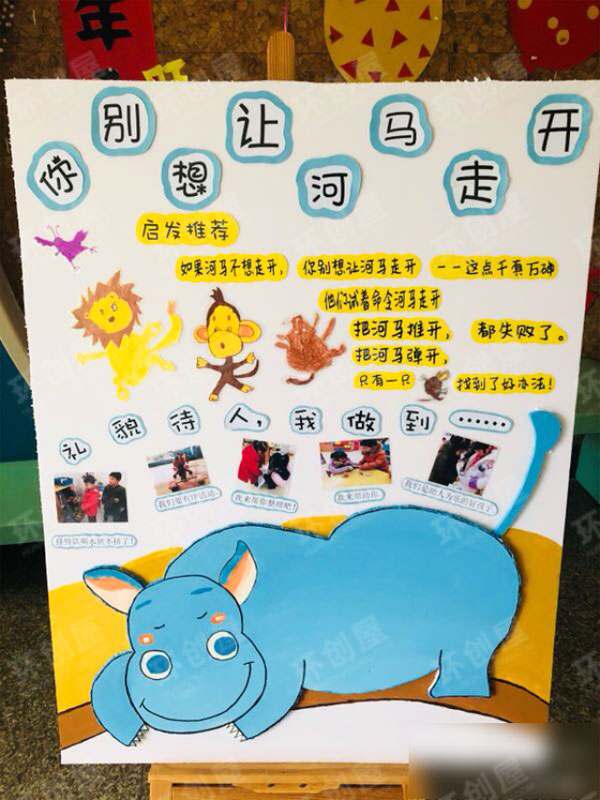 年
你别想让河马走开
启发推荐
如果河马不想走开， 你别想让河马走开 一一这点千真万确
他们试着命令河马走开
把河马推开， 都失败了。
把河马弹开，
只有一只 找到了好办法！
礼貌待人，我做到……
我们要有序活动
我来帮你整理吧！
我来帮助你
我们是助人为乐的好孩子
排排队喝水就不挤了！
环创屋